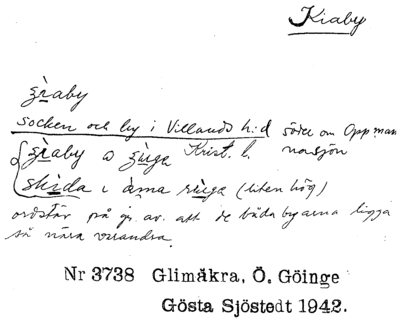 Kiaby
ʒ̀ıaby
socken och by i Villands h:d söder om Oppman
nasjön
ʒ̀ıaby o Krist. l.
skida i åma (liten hög)
ordstäv på gr. av. att de båda byarna ligga
så nära varandra.
Nr 3738 Glimåkra, Ö. Göinge
Gösta Sjöstedt 1942.